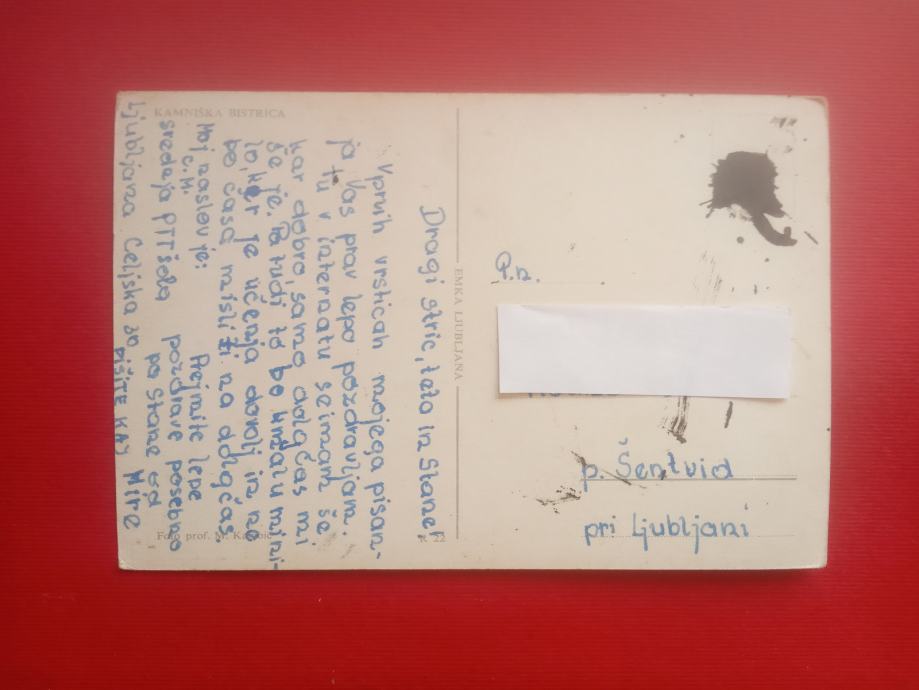 KAMNIŠKA BISTRICA
Dragi stric, teta in Stane!
Vprvih vrsticah mojega pisan-
ja Vas prav lepo pozdravljam.
ja tu v internatu se imam še
kar dobro, samo dolgčas mi
še je. Pa tudi to bo kmalu mini-
lo, ker je učenja dovolj in ne
bo časa misliti na dolgčas.
Moj naslov je:
C.M.
srednja PTT šola
Ljubljana Celjska
Prejmite lepe
pozdrave posebno
pa Stane od
Mire
PIŠITE KAJ
EMKA LJUBLJANA
Foto prof. M.
R 22
P.n.
p. Šentvid
pri Ljubljani